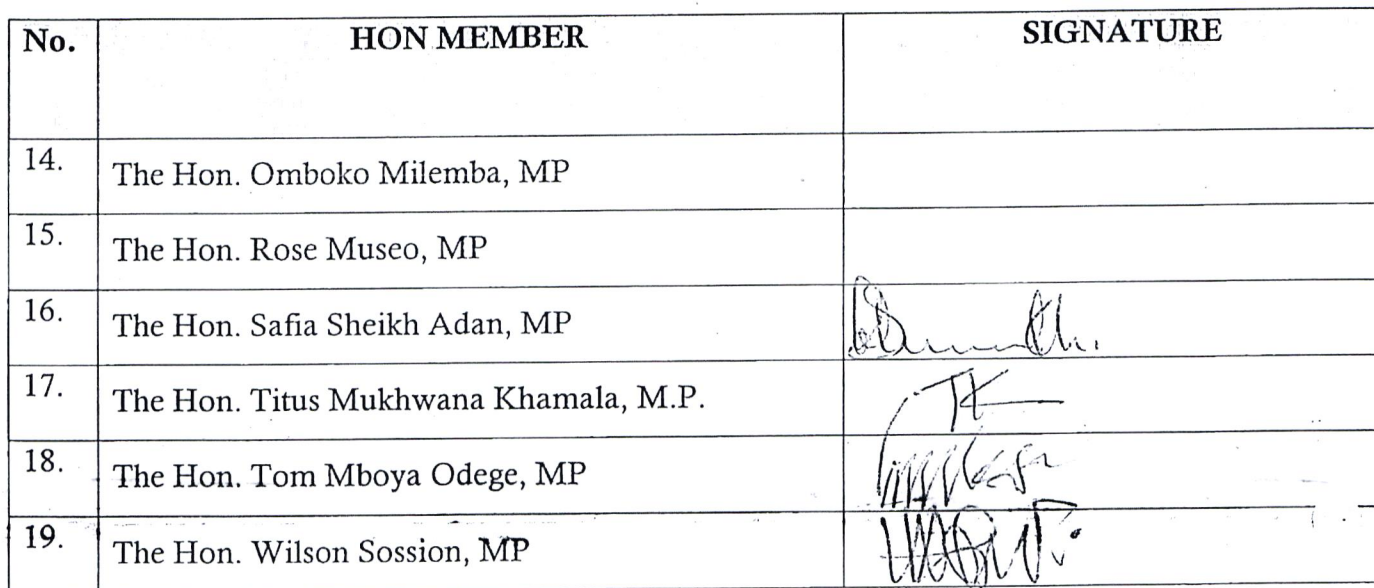 No. HON MEMBER SIGNATURE
14. The Hon. Omboko Milemba, MP
15. The Hon. Rose Museo, MP
16. The Hon. Safia Sheikh Adan, MP
17. The Hon. Titus Mukhwana Khamala, M.P.
18. The Hon. Tom Mboya Odege, MP
19. The Hon. Wilson Sossion, MP